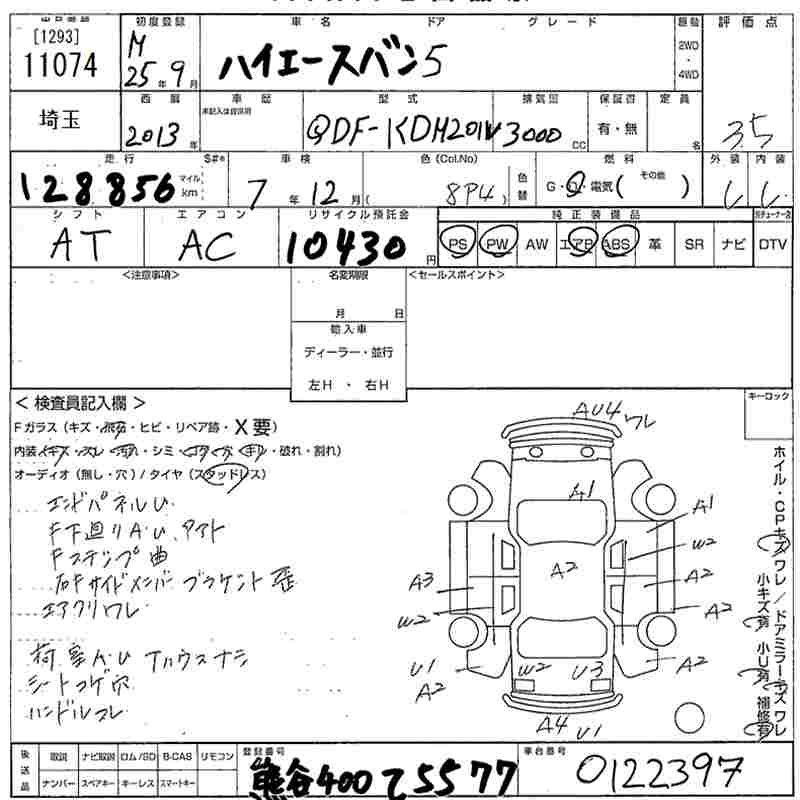 [1293]
11074
初度登録
H
25年9月
車名 ドア グレード
ハイエースバン5
駆動
2WD
・
4WD
評価点
3.5
埼玉
西暦
2013年
車歴
未記入は自家用
型式
QDF-KDH201V
排気図
3000cc
保証書
有・無
定員
名
走行
128856
マイル
km
S#*
車検
7年12月
色(Col.No)
8P4
色替
燃料
G・D・電気( その他 )
外装
内装
シフト
AT
エアコン
AC
リサイクル預託金
10430円
純正装備品
PS PW AW エアB ABS 革 SR ナビ DTV
<注意事項>
名変期限
月 日
輸入車
ディーラー・並行
左H・右H
<セールスポイント>
<検査員記入欄>
Fガラス(キズ・飛石・ヒビ・リペア跡・X要)
内装(キズ・スレ・汚れ・シミ・コゲ・穴・キレ・破れ・割れ)
オーディオ(無し・穴)/タイヤ(スタッドレス)
エンドパネルU
F下廻りA・U、サクト
Fステップ曲
右Fサイドメンバーブラケント歪
エアクリワレ
荷室A・U Tハウスナシ
シートコゲ穴
ハンドルスレ
キーロック
ホイル・CPキズワレ/ドアミラーキズワレ
小キズ有 小U有 補修有
AU4 ワレ
A1
A1
W2
A2
A2
A3
A2
W2
U1
A2
W2
U3
A2
A4
U1
後送品
取説 ナビ取説 ロム/SD B-CAS リモコン
ナンバー スペアキー キーレス スマートキー
登録番号
熊谷400て5577
車台番号
0122397